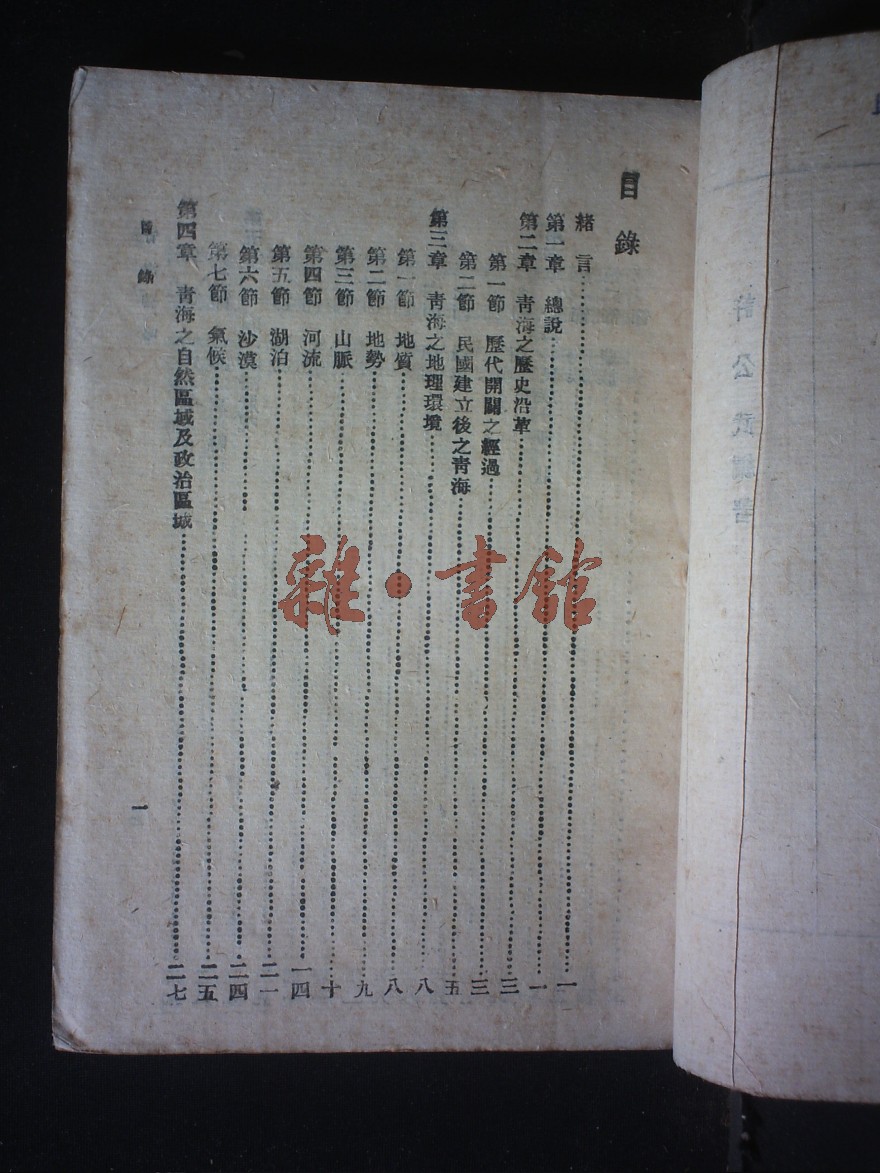 目錄
緒言 一
第一章 總說 一
第二章 青海之歷史沿革 三
第一節 歷代開闢之經過 三
第二節 民國建立後之青海 五
第三章 青海之地理環境 八
第一節 地質 八
第二節 地勢 九
第三節 山脈 十
第四節 河流 一四
第五節 湖泊 二一
第六節 沙漠 二四
第七節 氣候 二五
第四章 青海之自然區域及政治區域 二七
目錄 一
雜·書館